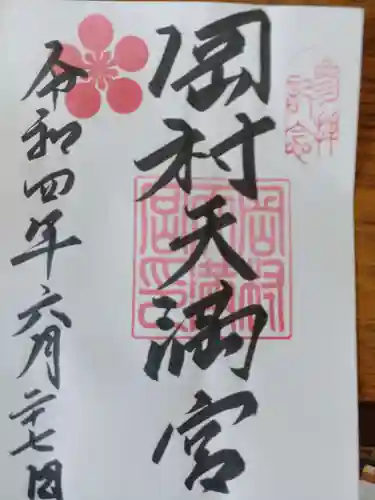 参拝記念
岡村天満宮
岡村天満宮印
令和四年六月二十七日